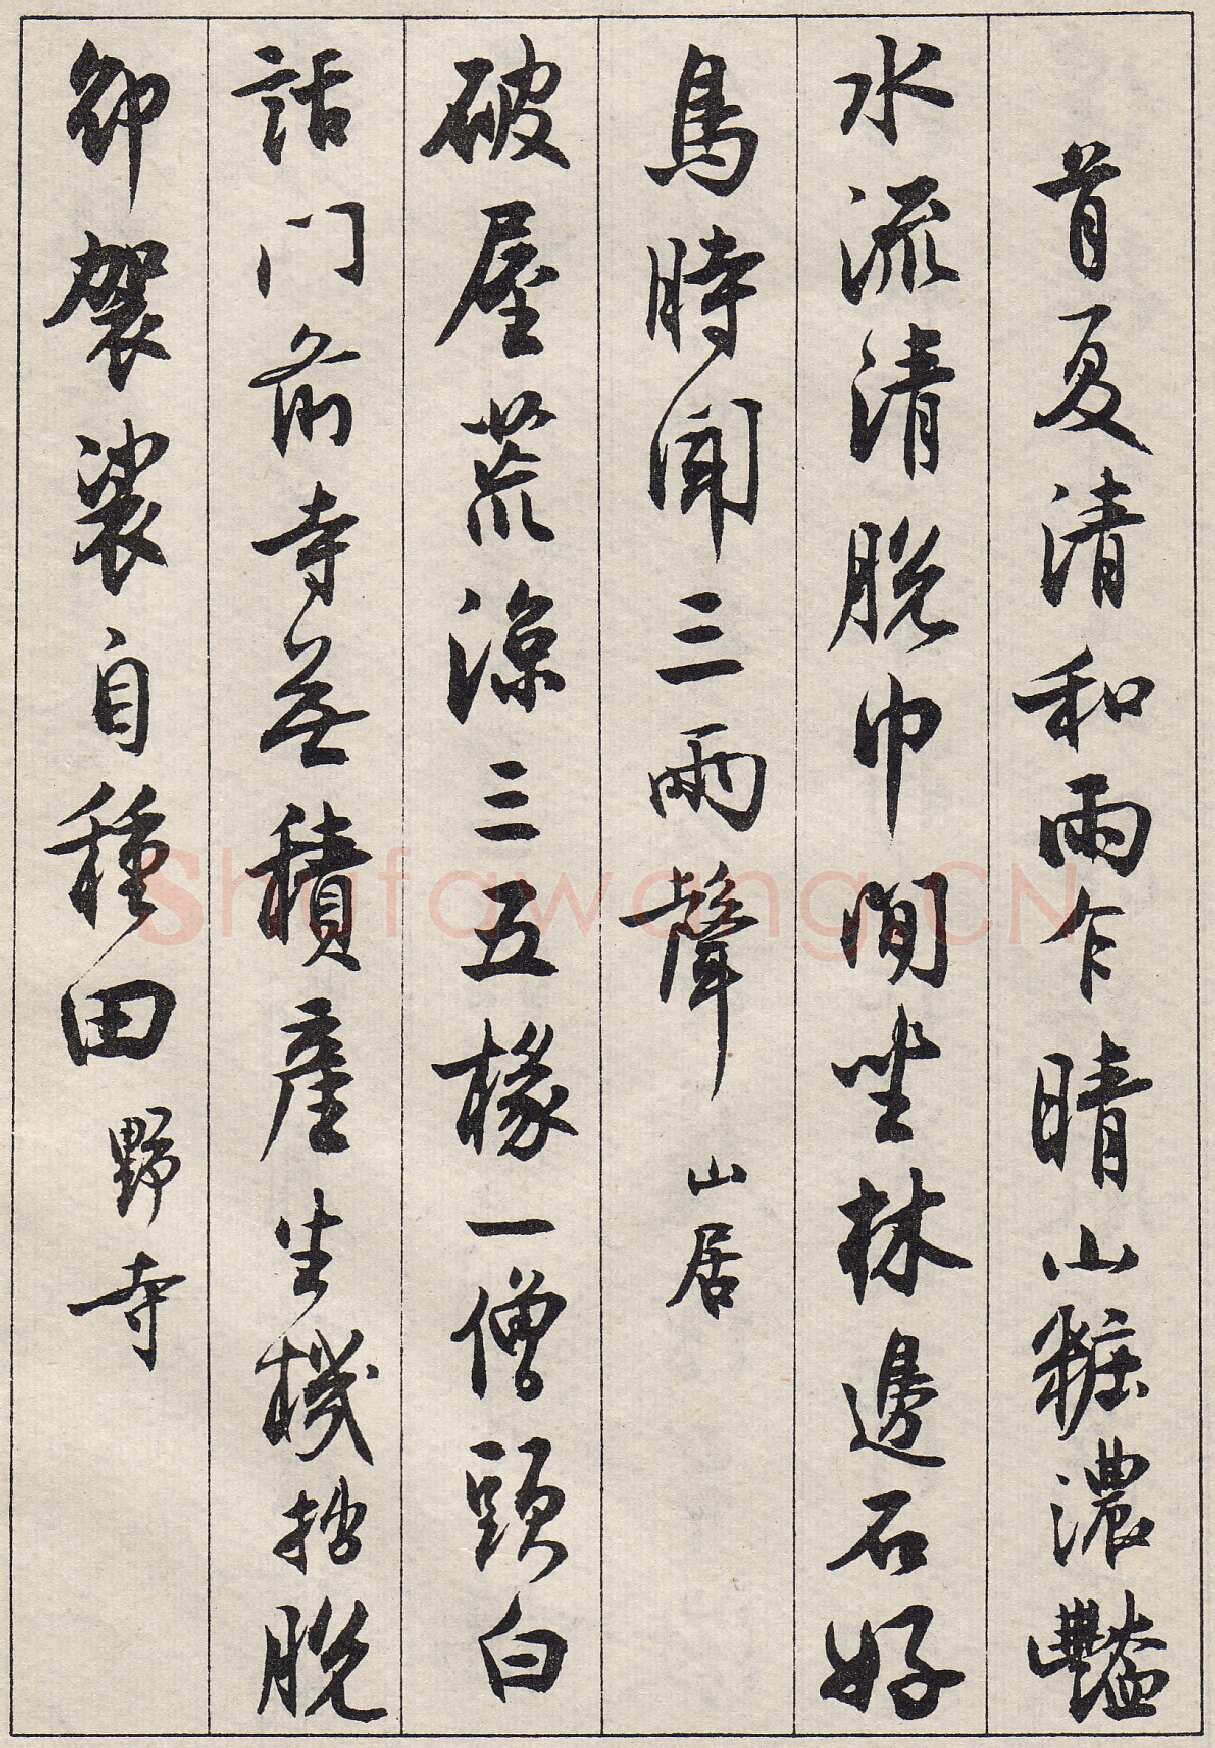 首夏清和雨乍晴山粧濃豔
水流清脱巾閒坐林邊石好
鳥時聞三兩聲 山居
破屋荒涼三五椽一僧頭白
話門前寺無積產生機拙脱
卻袈裟自種田 野寺
Shufawang.CN